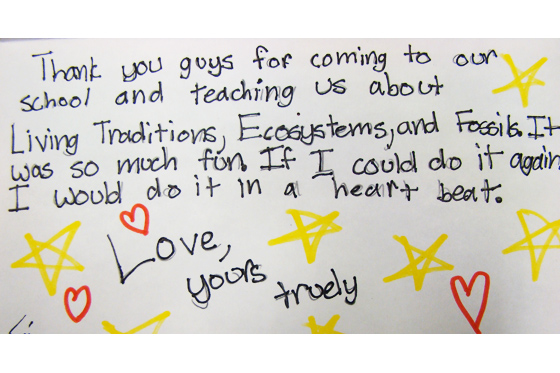 Thank you guys for coming to our
school and teaching us about
Living Traditions, Ecosystems, and Fossils. It
was so much fun. If I could do it again
I would do it in a heart beat.
Love,
yours truely